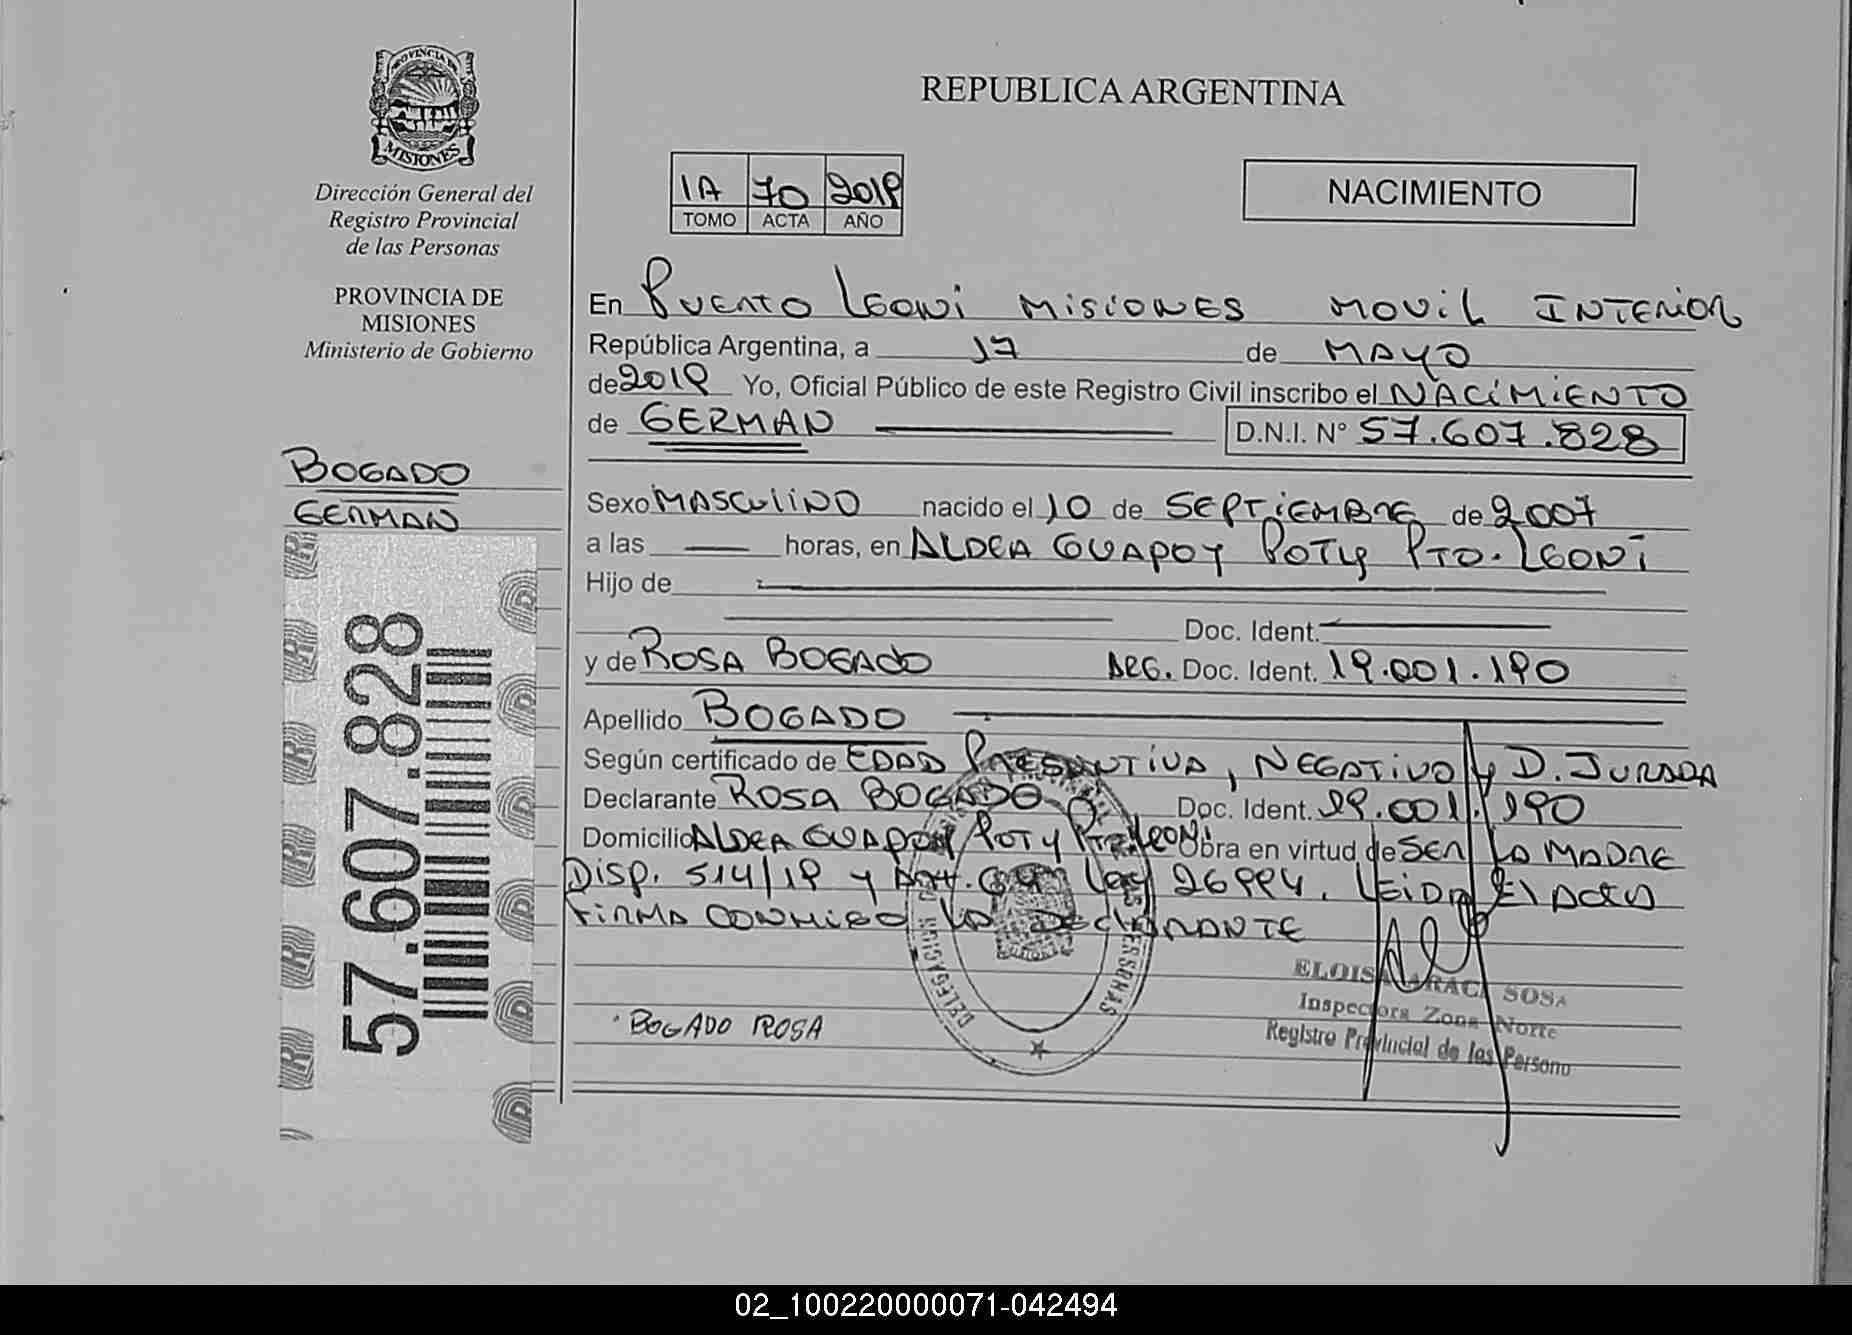 PROVINCIA DE
MISIONES
Dirección General del
Registro Provincial
de las Personas
PROVINCIA DE
MISIONES
Ministerio de Gobierno
BOGADO
GERMAN
57.607.828
REPUBLICA ARGENTINA
1A 70 2019
TOMO ACTA AÑO
NACIMIENTO
En PUERTO LEONI MISIONES MOVIL INTERIOR
República Argentina, a 17 de MAYO
de 2019 Yo, Oficial Público de este Registro Civil inscribo el NACIMIENTO
de GERMAN D.N.I. N° 57.607.828
Sexo MASCULINO nacido el 10 de SEPTIEMBRE de 2007
a las horas, en ALDEA GUAPOY POTY PTO. LEONI
Hijo de
Doc. Ident.
y de ROSA BOGADO ARG. Doc. Ident. 19.001.190
Apellido BOGADO
Según certificado de EDAD PRESUNTIVA, NEGATIVO Y D. JURADA
Declarante ROSA BOGADO Doc. Ident. 19.001.190
Domicilio ALDEA GUAPOY POTY PTO. LEONI Obra en virtud de SER LA MADRE
DISP. 514/19 Y Ley 26994. LEIDA El ACTA
FIRMA CONMIGO LA DECLARANTE
BOGADO ROSA
DELEGACION PERSONAS
ELOISA ARACI SOSA
Inspectora Zona Norte
Registro Provincial de las Persona
02_100220000071-042494